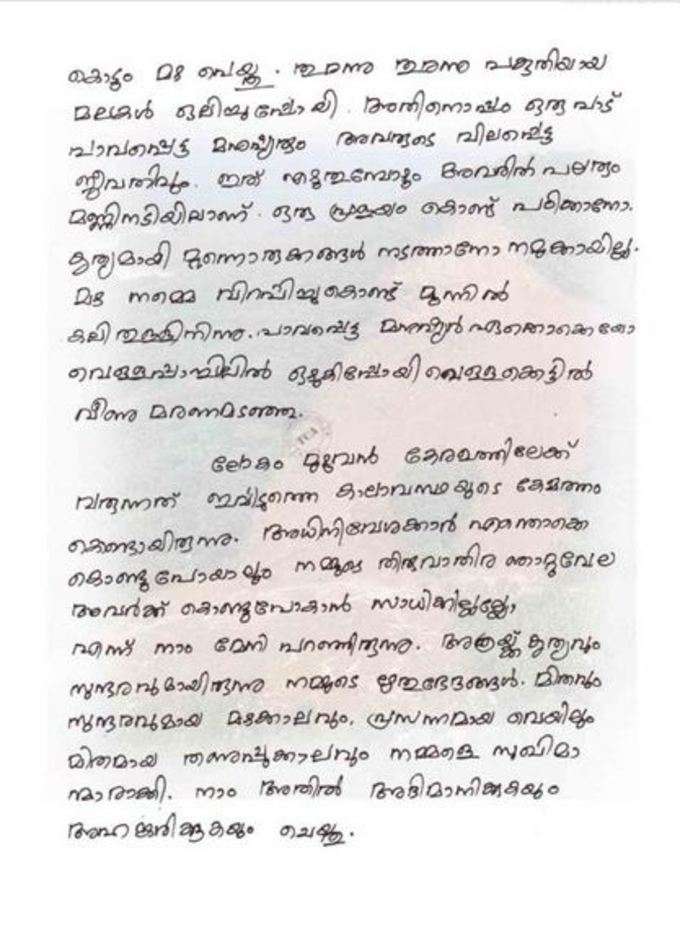 കൊടും മഴ പെയ്തു. തുരന്നു തുരന്നു പകുതിയായ
മലകൾ ഒലിയ്ച്ചുപോയി. അതിനൊപ്പം ഒരുപാട്
പാവപ്പെട്ട മനുഷ്യരും അവരുടെ വിലപ്പെട്ട
ജീവിതവും. ഇത് എഴുതുമ്പോഴും അവരിൽ പലരും
മണ്ണിനടിയിലാണ്. ഒരു പ്രളയം കൊണ്ട് പഠിക്കാനോ.
കൃത്യമായി മുന്നൊരുക്കങ്ങൾ നടത്താനോ നമുക്കായില്ല.
മഴ നമ്മെ വിറപ്പിച്ചുകൊണ്ട് മുന്നിൽ
കലി തുള്ളിനിന്നു. പാവപ്പെട്ട മനുഷ്യർ ഏതൊക്കെയോ
വെള്ളപ്പാച്ചിലിൽ ഒഴുകിപ്പോയി വെള്ളക്കെട്ടിൽ
വീണു മരണമടഞ്ഞു.
ലോകം മുഴുവൻ കേരളത്തിലേക്ക്
വരുന്നത് ഇവിടുത്തെ കാലാവസ്ഥയുടെ കേമത്തം
കൊണ്ടായിരുന്നു. അധിനിവേശക്കാർ എന്തൊക്കെ
കൊണ്ടുപോയാലും നമ്മുടെ തിരുവാതിര ഞാറ്റുവേല
അവർക്ക് കൊണ്ടുപോകാൻ സാധിക്കില്ലല്ലോ,
എന്ന് നാം മേനി പറഞ്ഞിരുന്നു. അത്രയ്ക്ക് കൃത്യവും
സുന്ദരവുമായിരുന്നു നമ്മുടെ ഋതുഭേദങ്ങൾ. മിതവും
സുന്ദരവുമായ മഴക്കാലവും, പ്രസന്നമായ വെയിലും
മിതമായ തണുപ്പുകാലവും നമ്മളെ സുഖിമാ
ന്മാരാക്കി. നാം അതിൽ അഭിമാനിക്കുകയും
അഹങ്കരിക്കുകയും ചെയ്തു.